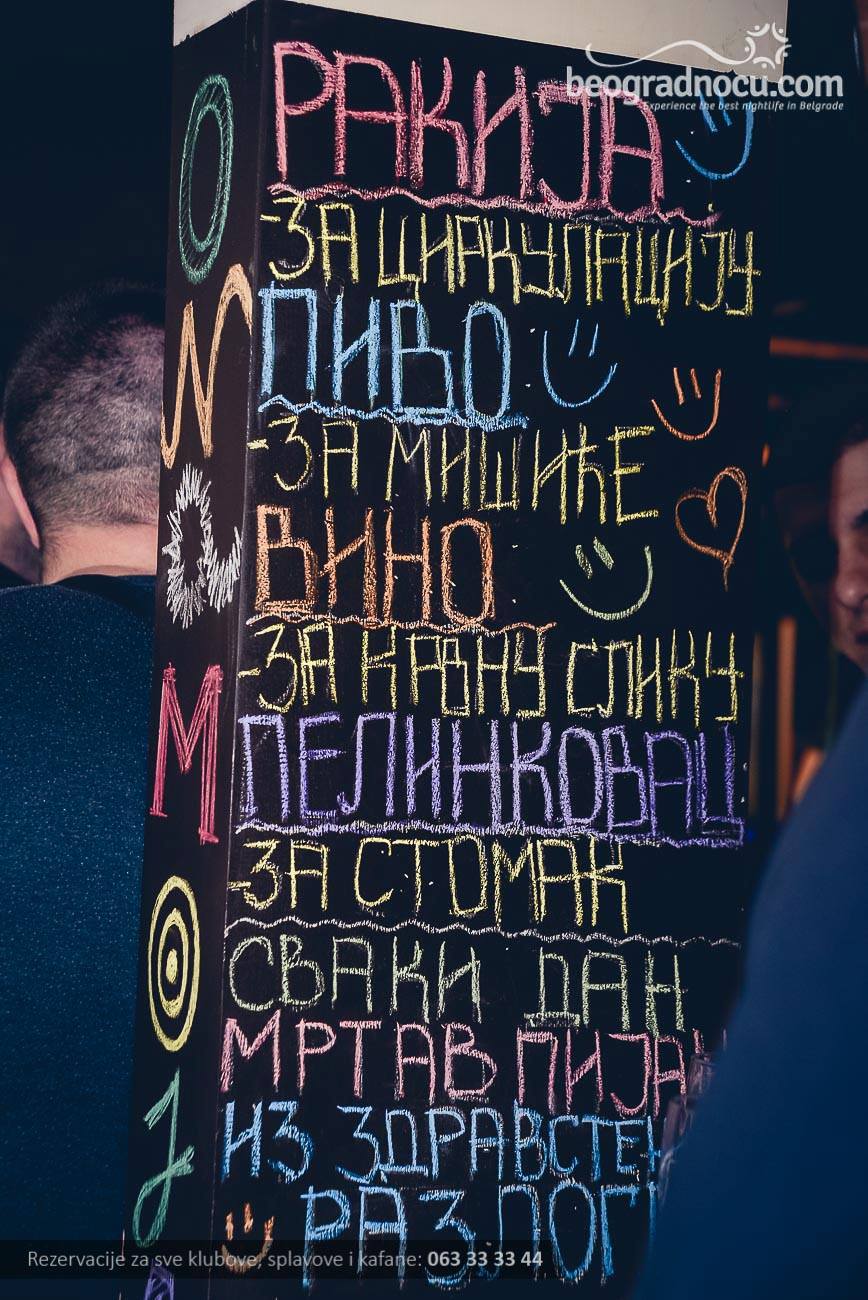 beogradnocu.com
Experience the best nightlife in Belgrade
РАКИЈА
-ЗА ЦИРКУЛАЦИЈУ
ПИВО
-ЗА МИШИЋЕ
ВИНО
-ЗА КРВНУ СЛИКУ
ПЕЛИНКОВАЦ
-ЗА СТОМАК
СВАКИ ДАН
МРТАВ ПИЈА
ИЗ ЗДРАВСТЕ
РАЗЛОГ
Rezervacije za sve klubove, splavove i kafane: 063 33 33 44